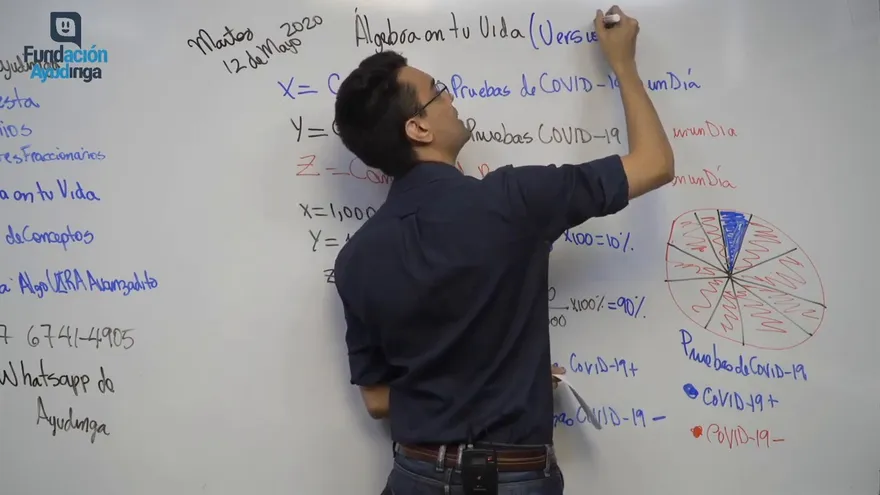 Fundación
Ayudinga
esta
Fraccionarios
on tu Vida
de Conceptos
Algo ULTRA Avanzadito
7 6741-4905
Whatsapp de
Ayudinga
Martes
12 de Mayo 2020
Álgebra en tu Vida (Versi
X= C Pruebas de COVID-1 un Día
Y= Pruebas COVID-19 un Día
Z = Can un Día
X=1,000
Y=
x100=10%
x100%=90%
COVID-19+
COVID-19 -
Pruebas de COVID-19
COVID-19+
COVID-19-